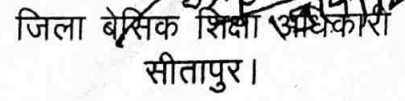 जिला बेसिक शिक्षा अधिकारी
सीतापुर।